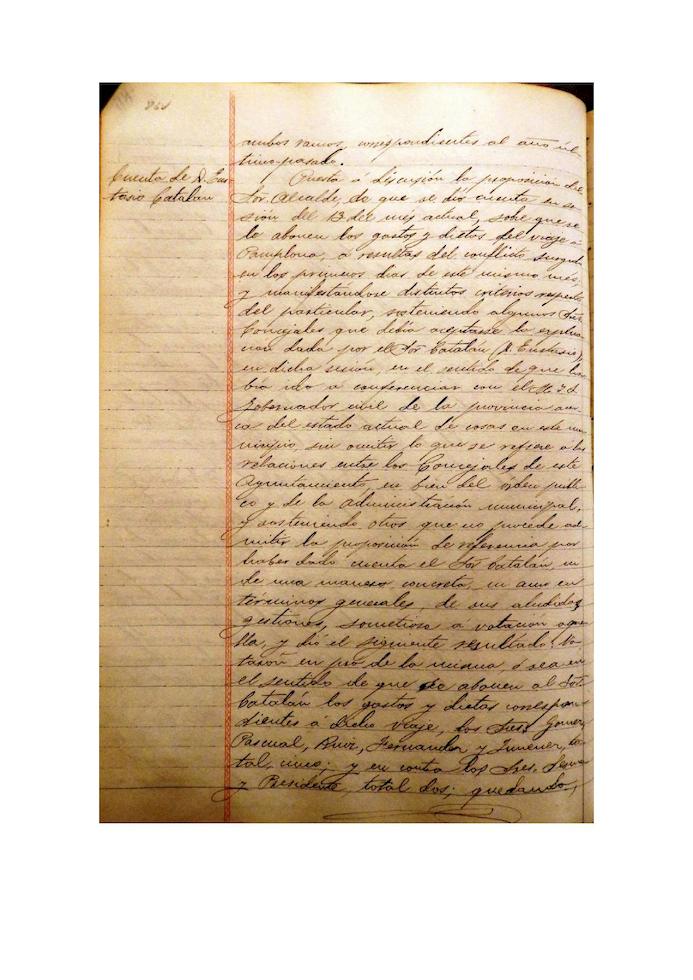 ambos ramos, correspondientes al año úl-
timo pasado.
Cuenta de D. Eus-
tasio Catalán
Puesta á discusión la proposición del
Sor. Alcalde, de que se dió cuenta en se-
sión del 13 del mes actual, sobre que se
le abonen los gastos y dietas del viaje a
Pamplona, á resultas del conflicto surgido
en los primeros días de este mismo mes,
y manifestándose distintos criterios respecto
del particular, sosteniendo algunos Sres.
Concejales que debía aceptarse la explica-
cion dada por el Sor Catalán (D. Eustasio),
en dicha sesión, en el sentido de que ha-
bía ido a conferenciar con el M. I. S.
Gobernador civil de la provincia acer-
ca del estado actual de cosas en este mu-
nicipio, sin omitir lo que se refiere á las
relaciones entre los Concejales de este
Ayuntamiento, en bien del órden públi-
co y de la administración municipal,
y sosteniendo otros que no procede ad-
mitir la proposición de referencia por
haber dado cuenta el Sor Catalán, ni
de una manera concreta, ni aun en
términos generales, de sus aludidas
gestiones, sometiose á votación aque-
lla, y dió el siguiente resultado: Vo-
taron en pró de la misma ó sea en
el sentido de que se abonen al Sor
Catalán los gastos y dietas correspon-
dientes á dicho viaje, los Sres. Gomez,
Pascual, Ruiz, Fernandez y Jimenez, to-
tal, cinco; y en contra los Sres.
y Presidente, total dos; quedando,